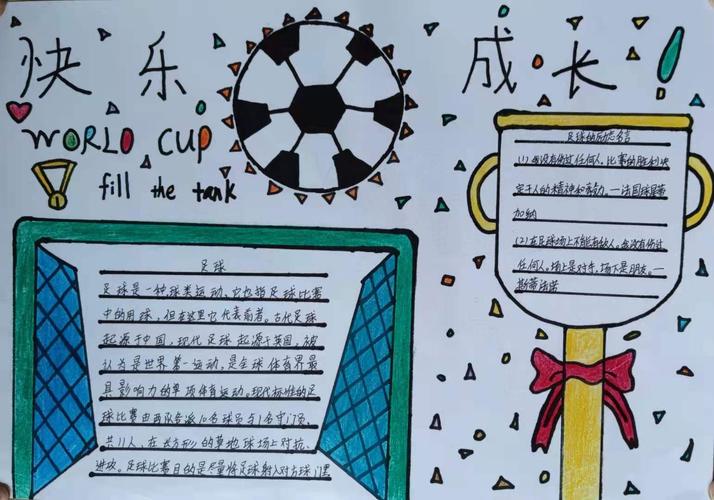 快乐
成长!
WORLD CUP
fill the tank
足球
足球是一种球类运动、它也指足球比赛
中的用球,但在这里它代表前者。古代足球
起源于中国,现代足球起源于英国,被
认为是世界第一运动,是全球体育界最
具影响力的单项体育运动。现代标准的足
球比赛由两队各派10名球员与1名守门员,
共11人,在长方形的草地球场上对抗、
进攻。足球比赛目的是尽量将足球射入对方球门里
足球的励志名言
(1)我没有伤过任何人,比赛的胜利决
定于人的精神和努力。—法国球星
加纳
(2)在足球场上不能有敌人。我没有伤过
任何人,场上是对手,场下是朋友。—
斯蒂法诺